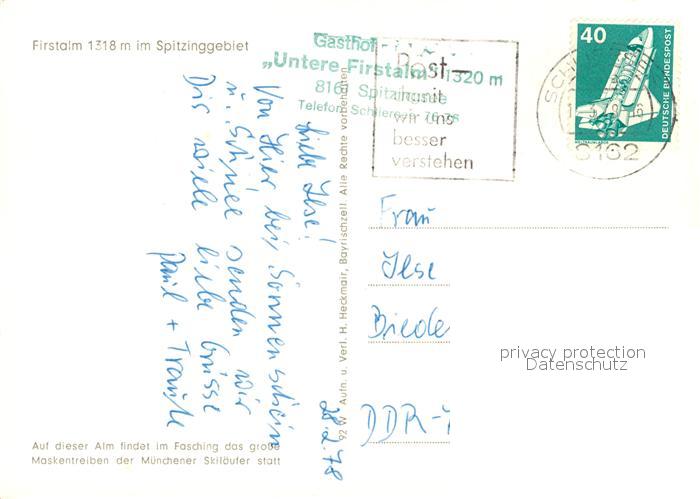 Firstalm 1318 m im Spitzinggebiet
Gasthof
„Untere Firstalm" 1320 m
8161 Spitzingsee
Telefon Schliersee
Post—
damit
wir uns
besser
verstehen
40
DEUTSCHE BUNDESPOST
8162
Liebe Ilse!
Von Hier, bei Sonnenschein
u. Schnee senden wir
Dir viele liebe Grüsse
Paul + Traute
28.2.78
92 W Aufn. u. Verl. H. Heckmair, Bayrischzell. Alle Rechte vorbehalten
Frau
Ilse
Biede
DDR-
privacy protection
Datenschutz
Auf dieser Alm findet im Fasching das große
Maskentreiben der Münchener Skiläufer statt